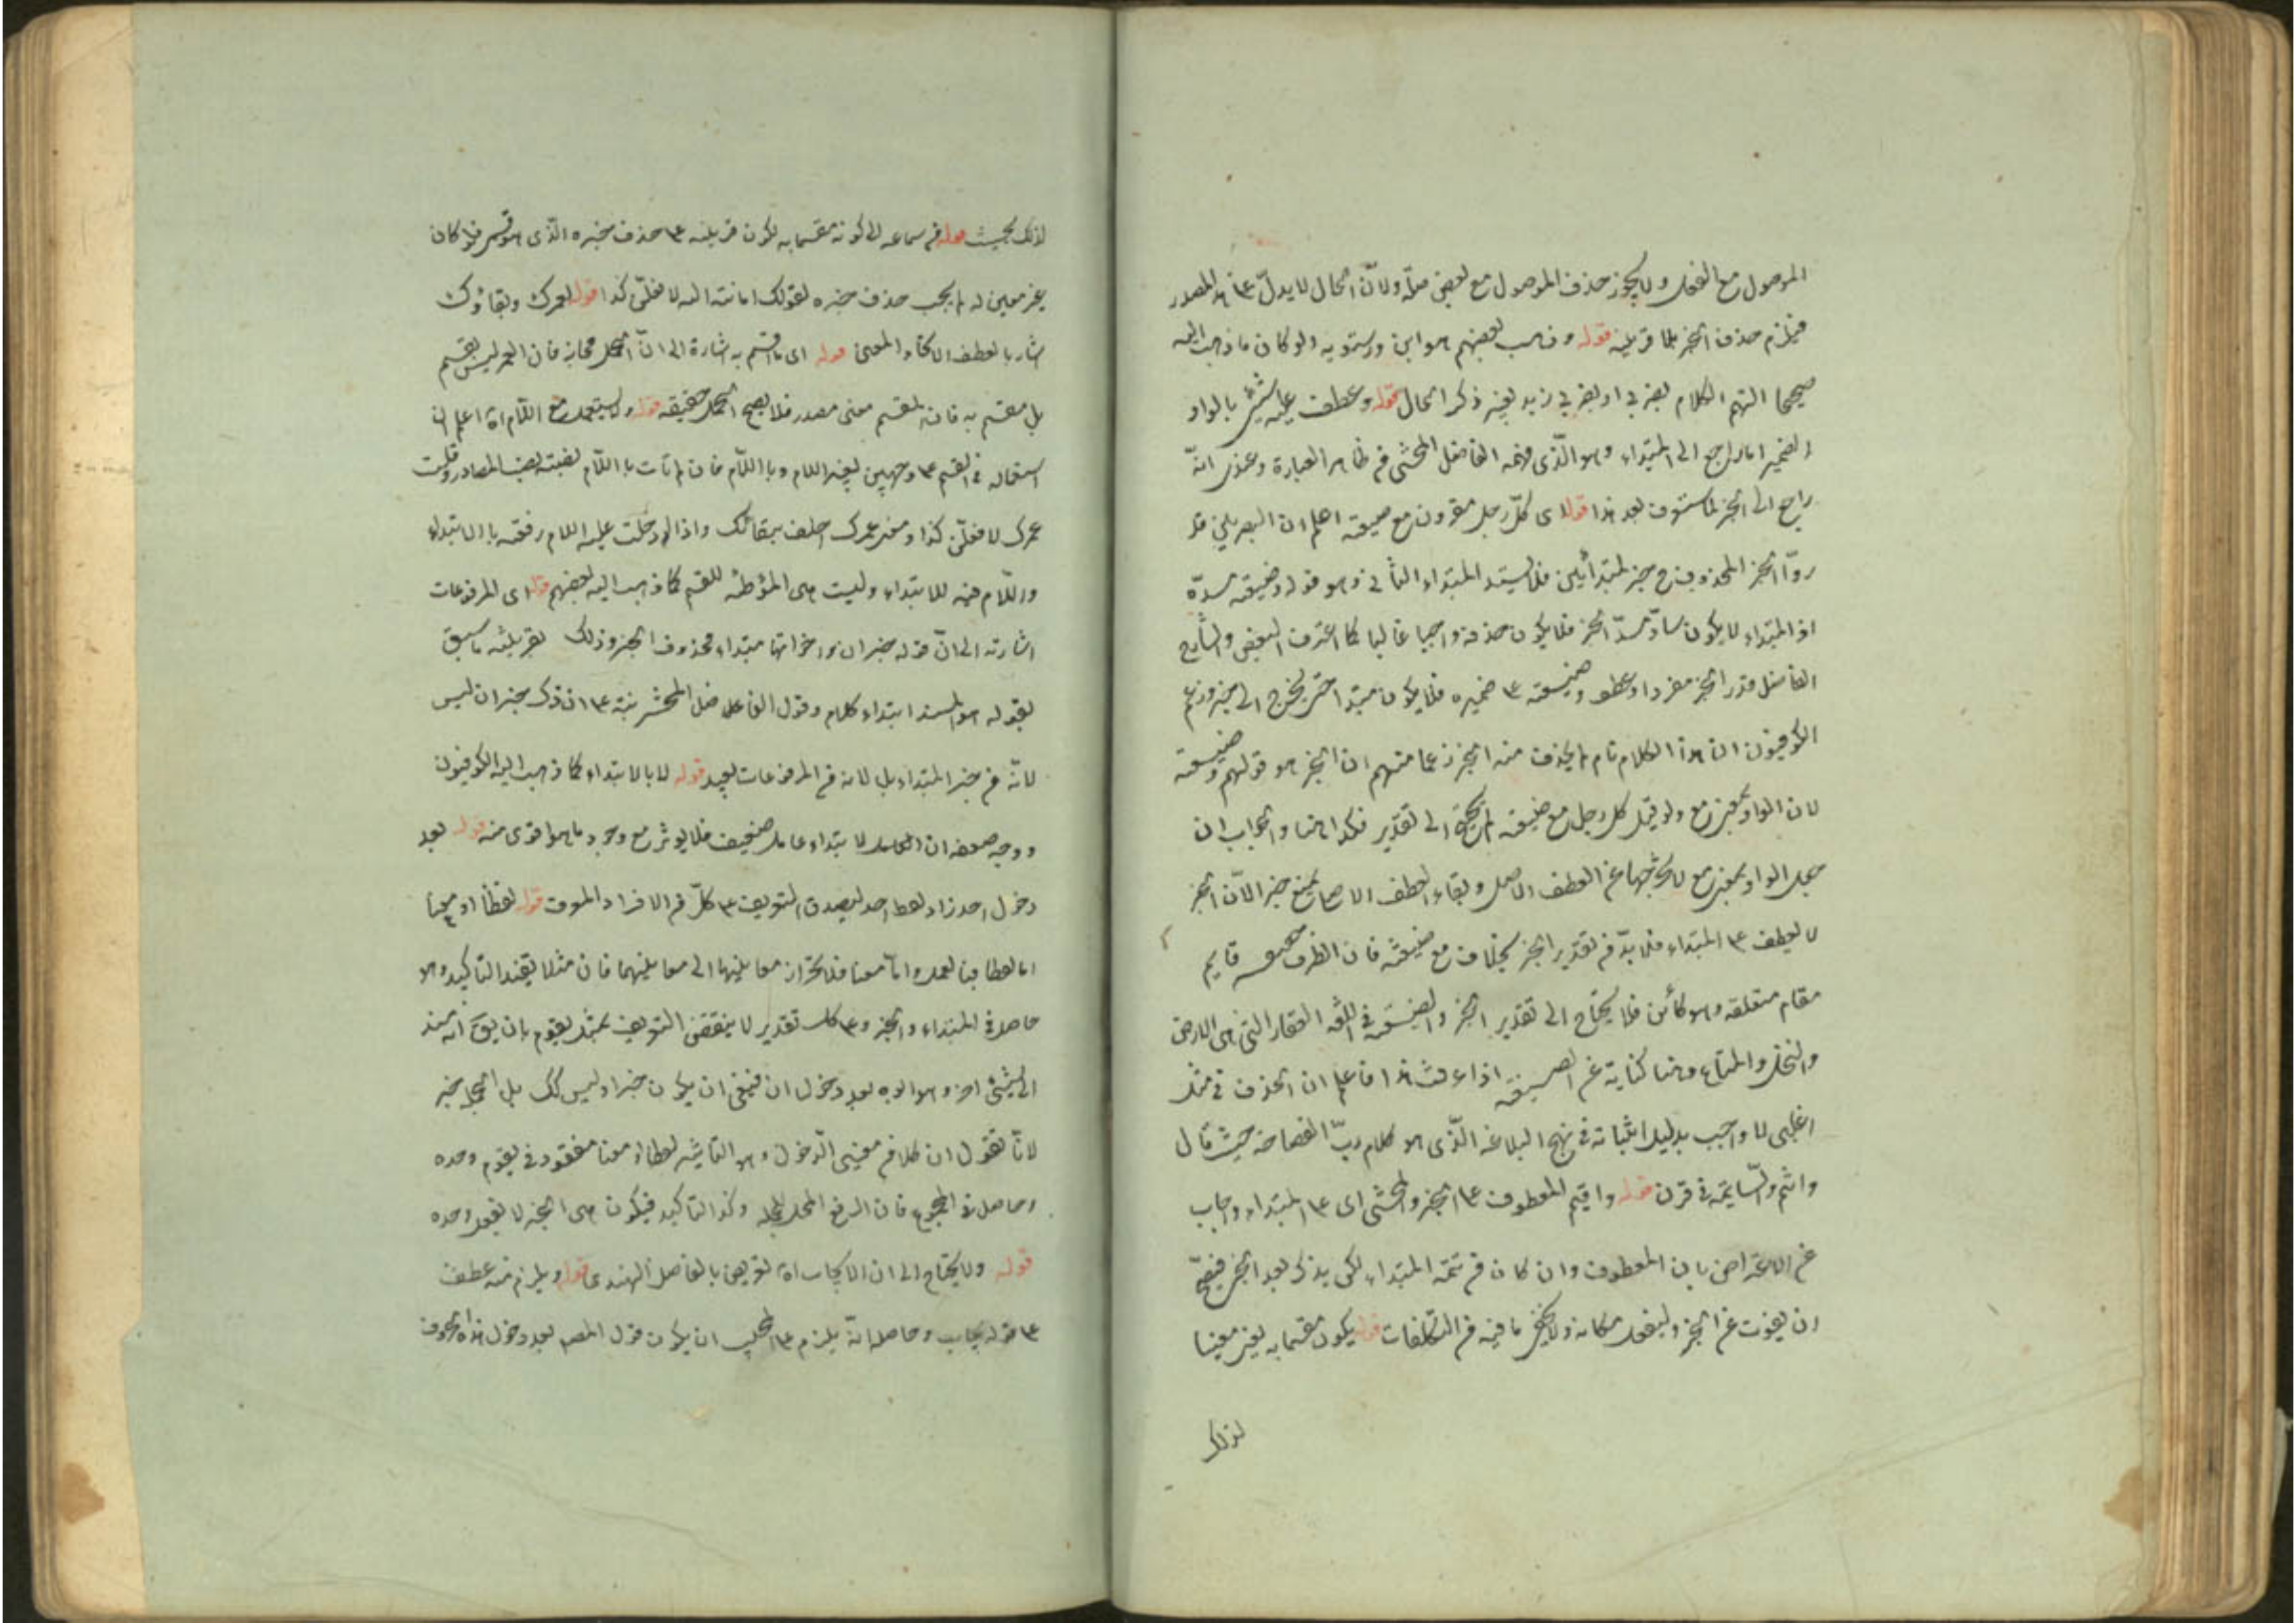 الموصول مع الفعل ولا يجوز حذف الموصول مع بعض صلته ولان الحال لا يدل على المصدر
فيلزم حذف الخبر بلا قرينة قوله وذهب بعضهم هو ابن درستويه ولو كان ما ذهب اليه
صحيحا التهم الكلام بضربى او بضربى زيد بغير ذكر الحال قوله وعطف عليه شئ بالواو
الضمير اما راجع الى المبتداء وهو الذى فهمه الفاضل المحشى فى ظاهر العبارة وعندى انه
راجع الى الخبر كما ستعرف بعد هذا قوله اى كل رجل مقرون مع ضيعته اعلم ان البصريين قد
ردوا الخبر المحذوف خبر لمبتدأين فلا يسد المبتداء الثانى وهو قوله وضيعته مسده
اذ المبتداء لا يكون سادا مسد الخبر فلا يكون حذفه واجبا غالبا كما اعترف البعض والشارح
الفاضل قدر الخبر مفردا وعطف وضيعته على ضميره فلا يكون مبتدا حتى يحتاج الى خبر وزعم
الكوفيون ان هذا الكلام تام لم يحذف منه الخبر زعما منهم ان الخبر هو قولهم وضيعته
لان الواو بمعنى مع ولو قيل كل رجل مع ضيعته لم يحتج الى تقدير فكذا هنا والجواب ان
جعل الواو بمعنى مع لا يخرجها عن العطف الاصل وبقاء العطف الاصل يمنع خبر الان الخبر
لا يعطف على المبتداء فلا بد فى تقدير الخبر بخلاف مع ضيعته فان الظرف قايم
مقام متعلقه وهو كائن فلا يحتاج الى تقدير الخبر والضيعة فى اللغة العقار التى هى الارض
والنخل والمتاع وهنا كناية عن الصيغة اذا عرفت هذا فاعلم ان الحذف فى مثل
اغلبى لا واجب بدليل اثباته فى نهج البلاغة الذى هو كلام رب الفصاحة حيث قال
وانتم والساعة فى قرن قوله واقيم المعطوف على الخبر والمحشى اى على المبتداء واجاب
عن الاعتراض بان المعطوف وان كان فى تتمة المبتداء لكن يذكر بعد الخبر فيصح
ان يعوت عن الخبر وليفعل مكانه ولا يخفى ما فيه فى التكلفات قوله يكون مقسما به بغير معينا
لذلك
لذلك بحيث قوله فى سماعه الى كونه مقسما به يكون قرينة على حذف خبره الذى هو قسمى فلو كان
غير معين له لم يجب حذف خبره كقولك امانة الله لا فعلن كذا قوله لعمرك وبقاؤك
اشار بالعطف الاتحاد المعنى قوله اى ما اقسم به اشارة الى ان الحمل مجاز فان العمر ليس بقسم
بل مقسم به فان القسم معنى مصدر فلا يصح الحمل حقيقة قوله ولا يستعمل مع اللام اه اعلم ان
استعماله فى القسم على وجهين بغير اللام وبا اللام فان لم تأت با اللام نصبته نصب المصادر وقلت
عمرك لا فعلن كذا ومعنى عمرك احلف ببقائك واذا ادخلت عليه اللام رفعته بالابتداء
واللام فيه للابتداء وليست هى المؤطئة للقسم كما ذهب اليه بعضهم قوله اى المرفوعات
اشارته الى ان قوله خبر ان واخواتها مبتداء محذوف الخبر وذلك بقرينة ما سبق
بقوله هو المسند ابتداء كلام وقول الفاضل المحشى بنية على ان ذكر خبر ان ليس
لانه فى خبر المبتداء بل لانه فى المرفوعات بعيد قوله لا بالابتداء كما ذهب اليه الكوفيون
ووجه ضعفه ان العامل الابتداء عامل ضعيف فلا يوثر مع وجود ما هو اقوى منه قوله بعد
دخول احد زاد لفظ احد ليصدق التعريف على كل فى الافراد المعرف قوله لفظا او معنا
اما لفظا فبالعمل واما معنا فلا يجوز ان معانيها الى معانيهما فان مثلا يفيد التاكيد وهو
حاصل فى المبتداء والخبر وعلى كل تقدير لا ينتقض التعريف بمثل يقوم بان يق انه مسند
الى شئ اخر وهو ابوه بعد دخول ان فينبغى ان يكون خبرا وليس كك بل الجملة خبر
لانا نقول ان كلا فى معنيى الدخول وهو التاثير لفظا او معنا مفقود فى يقوم وحده
وحاصل فى المجموع فان الرفع المحل للجملة وكذا التاكيد فيكون هى الخبر لا يقوم وحده
قوله ولا يحتاج الى ان الايجاب اه تعريض بالفاضل الهندى قوله ويلزم منه عطف
على قوله يجاب وحاصله انه يلزم على المجيب ان يكون قول المص بعد دخول هذه الحروف